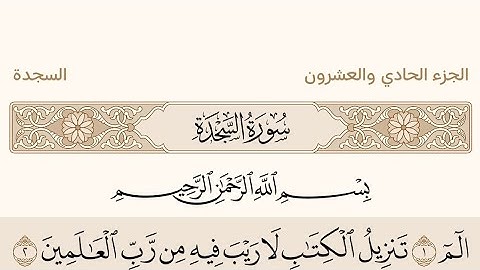 الجزء الحادي والعشرون السجدة
سُورَةُ السَّجْدَةِ
بِسْمِ اللَّهِ الرَّحْمَٰنِ الرَّحِيمِ
الٓمٓ ١ تَنزِيلُ الْكِتَٰبِ لَا رَيْبَ فِيهِ مِن رَّبِّ الْعَٰلَمِينَ ٢